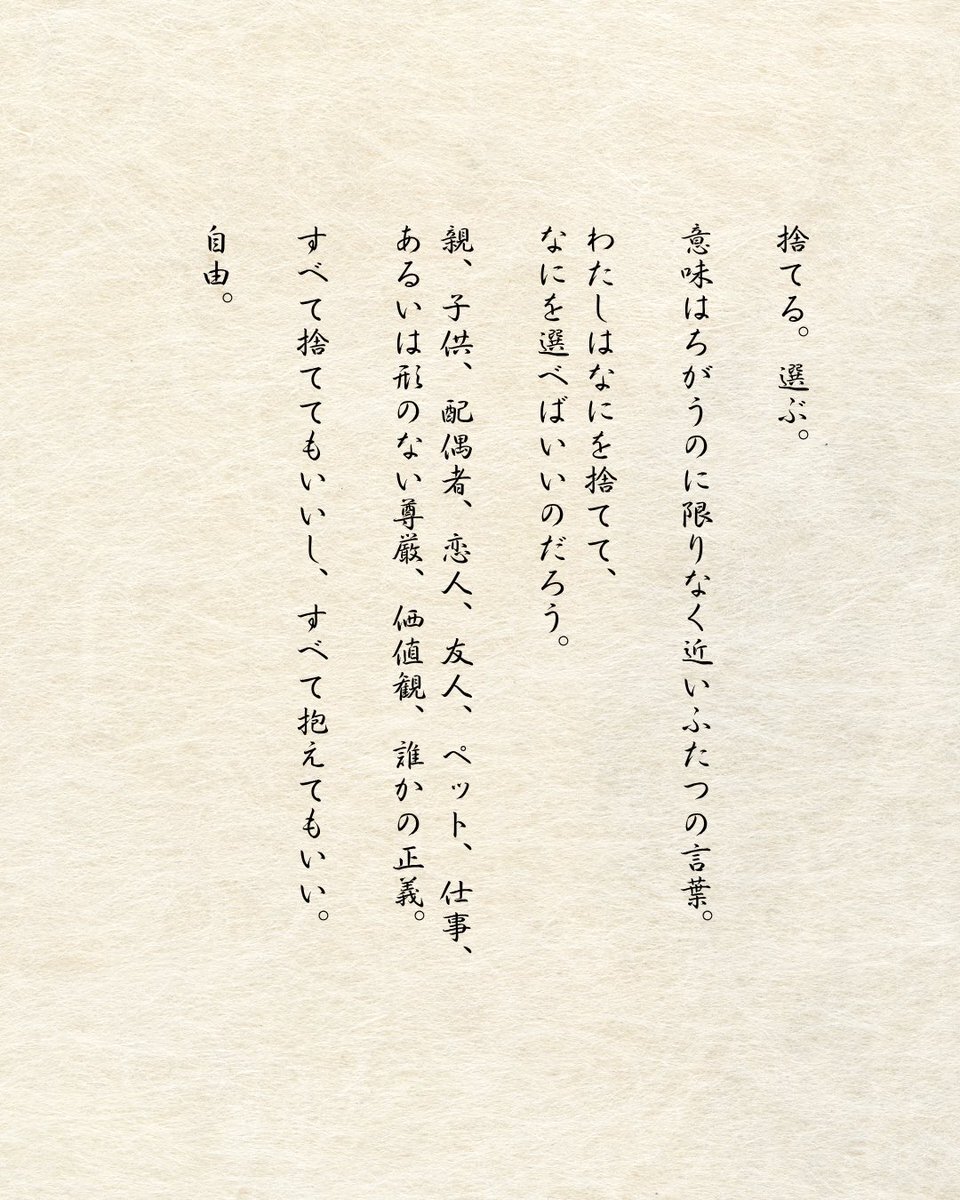 捨てる。選ぶ。
意味はちがうのに限りなく近いふたつの言葉。
わたしはなにを捨てて、
なにを選べばいいのだろう。
親、子供、配偶者、恋人、友人、ペット、仕事、
あるいは形のない尊厳、価値観、誰かの正義。
すべて捨ててもいいし、すべて抱えてもいい。
自由。